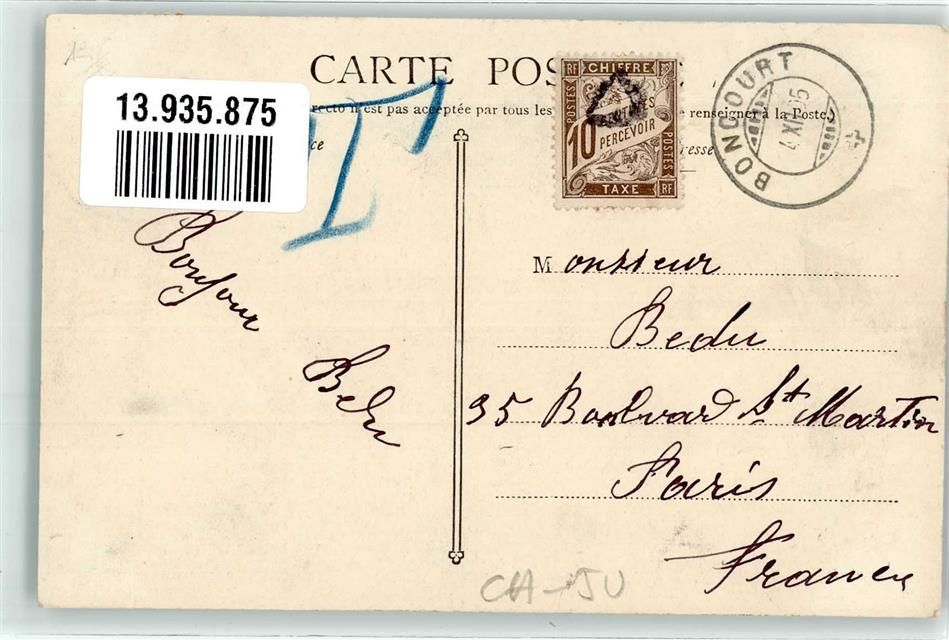 13.935.875
CARTE POS
recto n'est pas acceptée par tous les
e renseigner à la Poste.)
ce
resse
T
RF CHIFFRE RF
POSTES
10
PERCEVOIR
POSTES
TAXE RF
BONCOURT
4 XII 05
Bonjour
Monsieur
Bedu
35 Boulvard St Martin
Paris
France
CH-JU